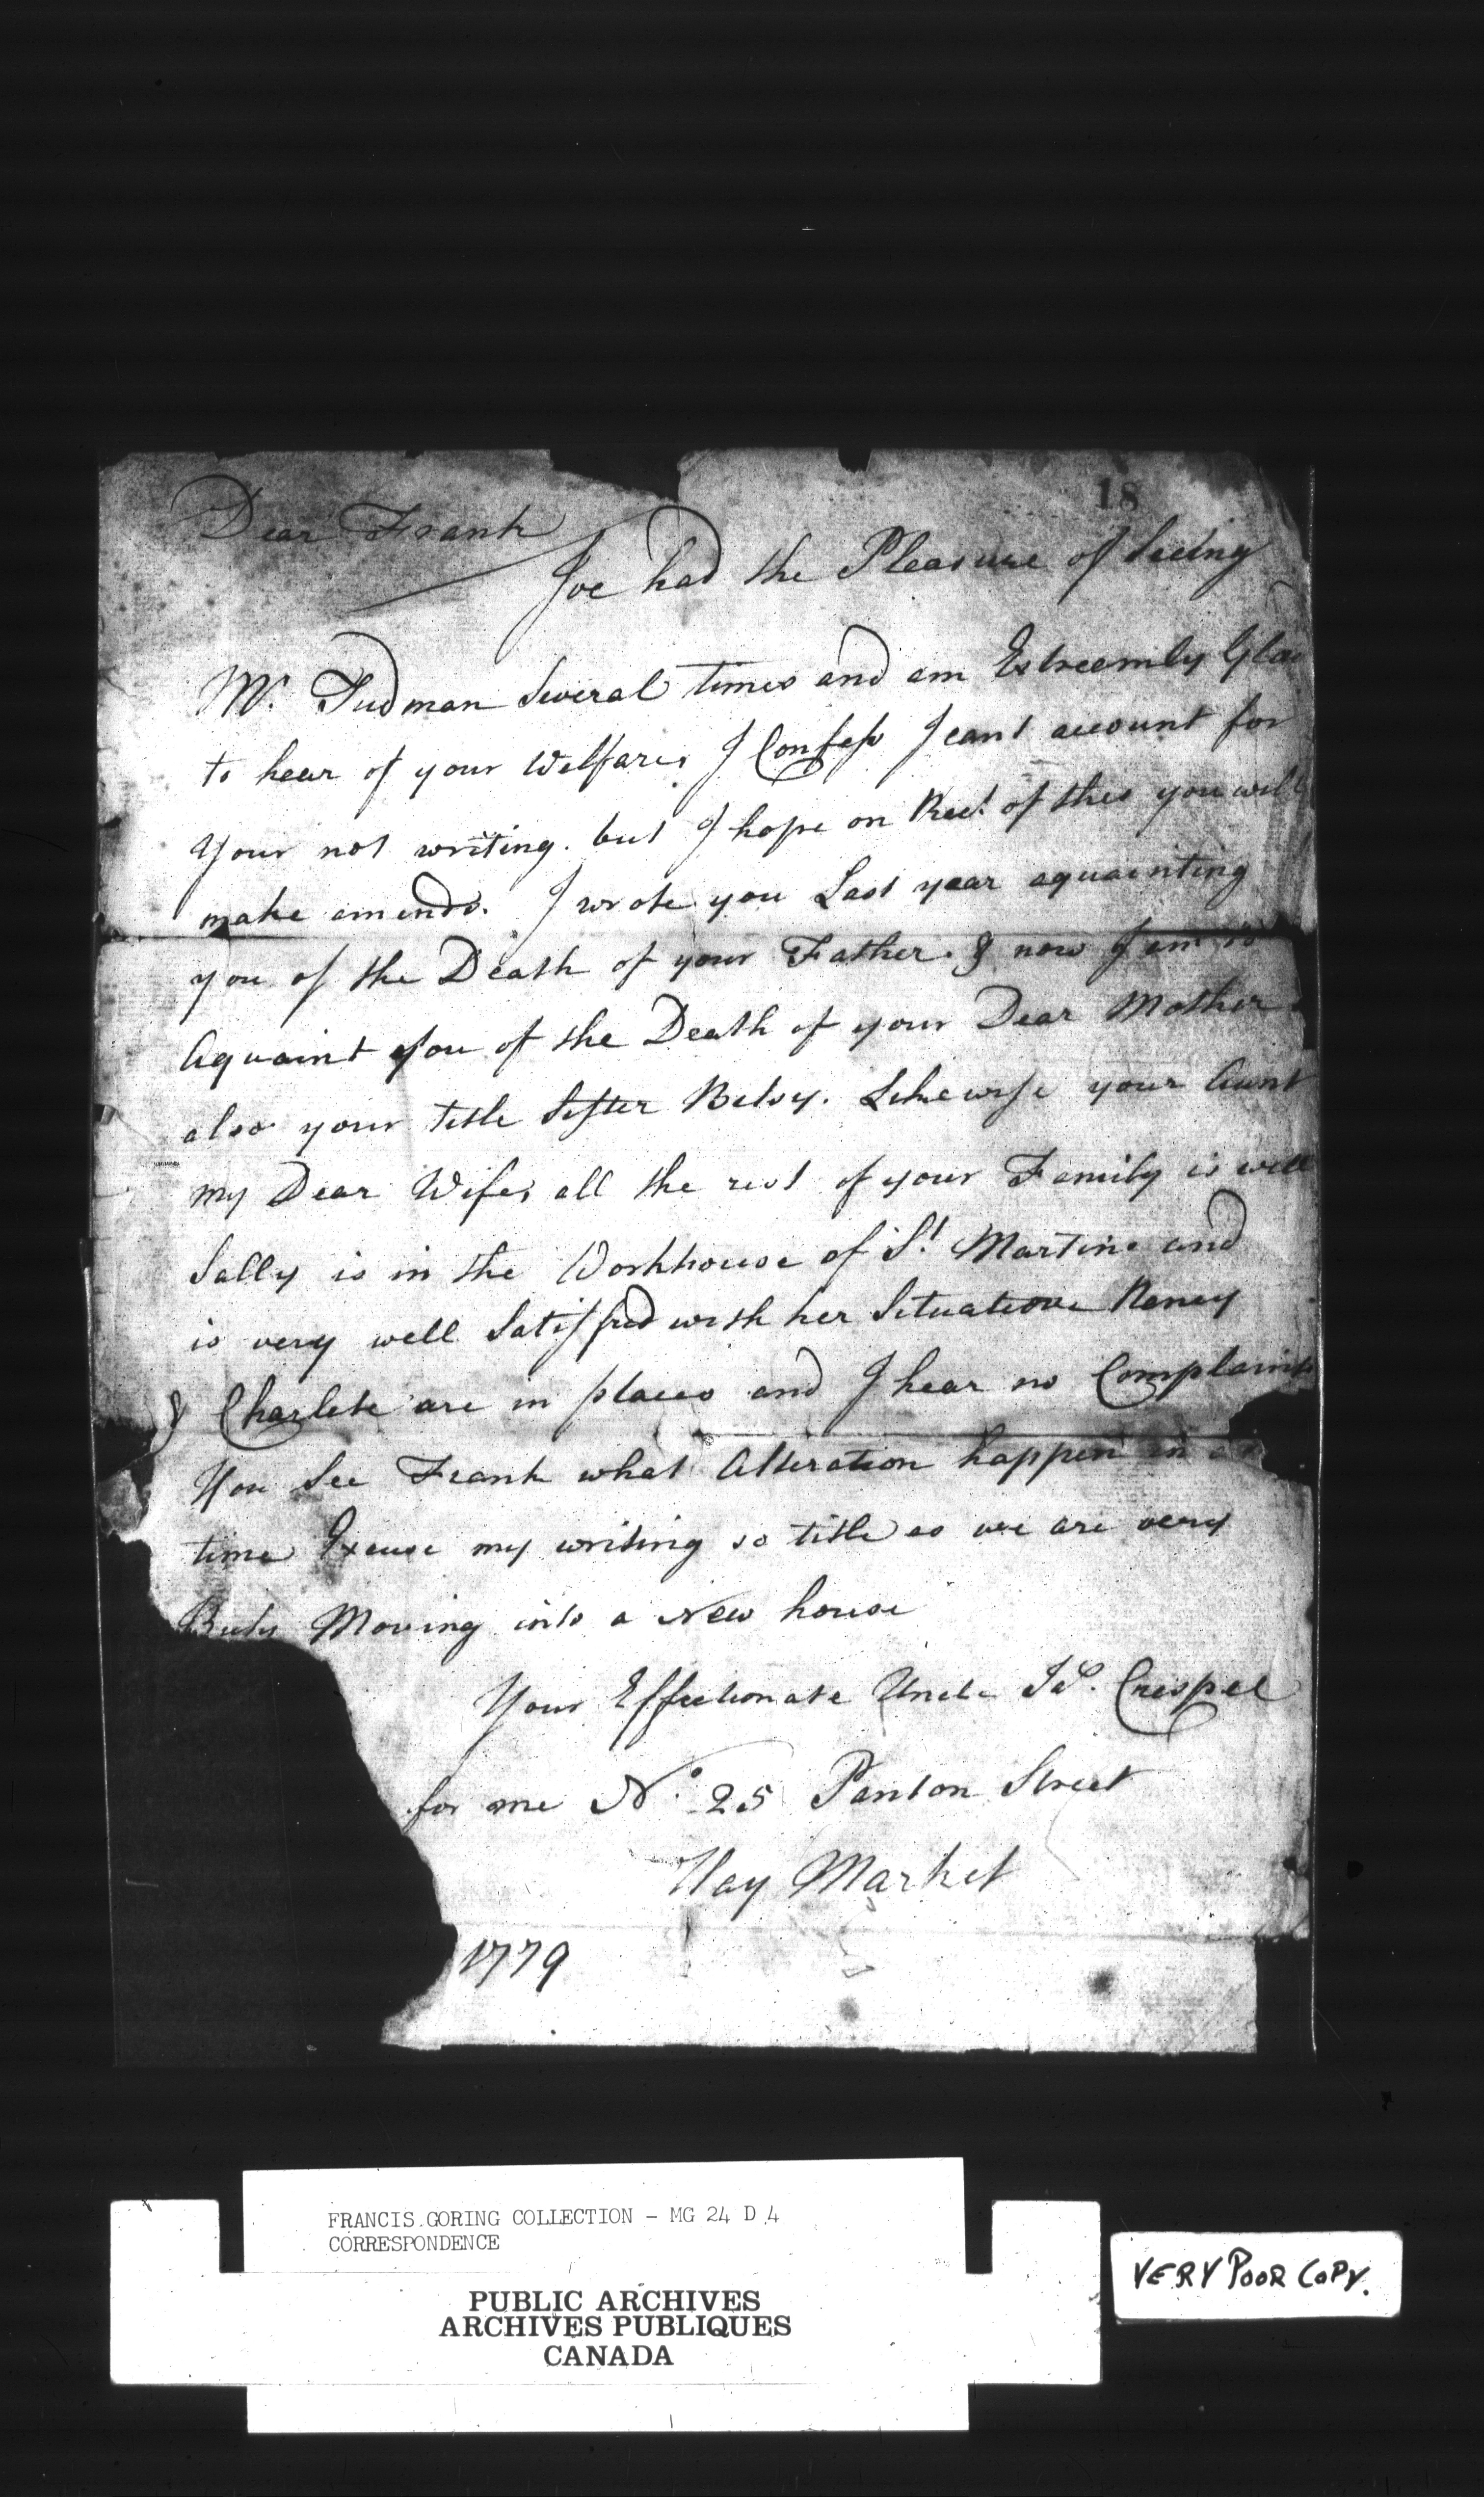 18
Dear Frank
Joe had the Pleasure of Seeing
Mr. Tudman Several times and am Extreemly Glad
to hear of your Welfare, I Confess I cant account for
Your not writing. but I hope on Rect. of this you will
make amends. I wrote you Last year aquainting
you of the Death of your Father. & now I am to
Aquaint you of the Death of your Dear Mother
also your little Sister Betsy. Likewise your Aunt
my Dear Wife, all the rest of your Family is well
Sally is in the Workhouse of St. Martins and
is very well Satisfied with her Situation Nancy
& Charlete are in places and I hear no Complaints
You See Frank what Alteration happen in a
time Excuse my writing so little as we are very
Busy Moving into a New house
Your Effectionate Uncle Crespel
for me No. 25 Panton Street
Hay Market
1779
FRANCIS GORING COLLECTION - MG 24 D 4
CORRESPONDENCE
PUBLIC ARCHIVES
ARCHIVES PUBLIQUES
CANADA
VERY POOR COPY.